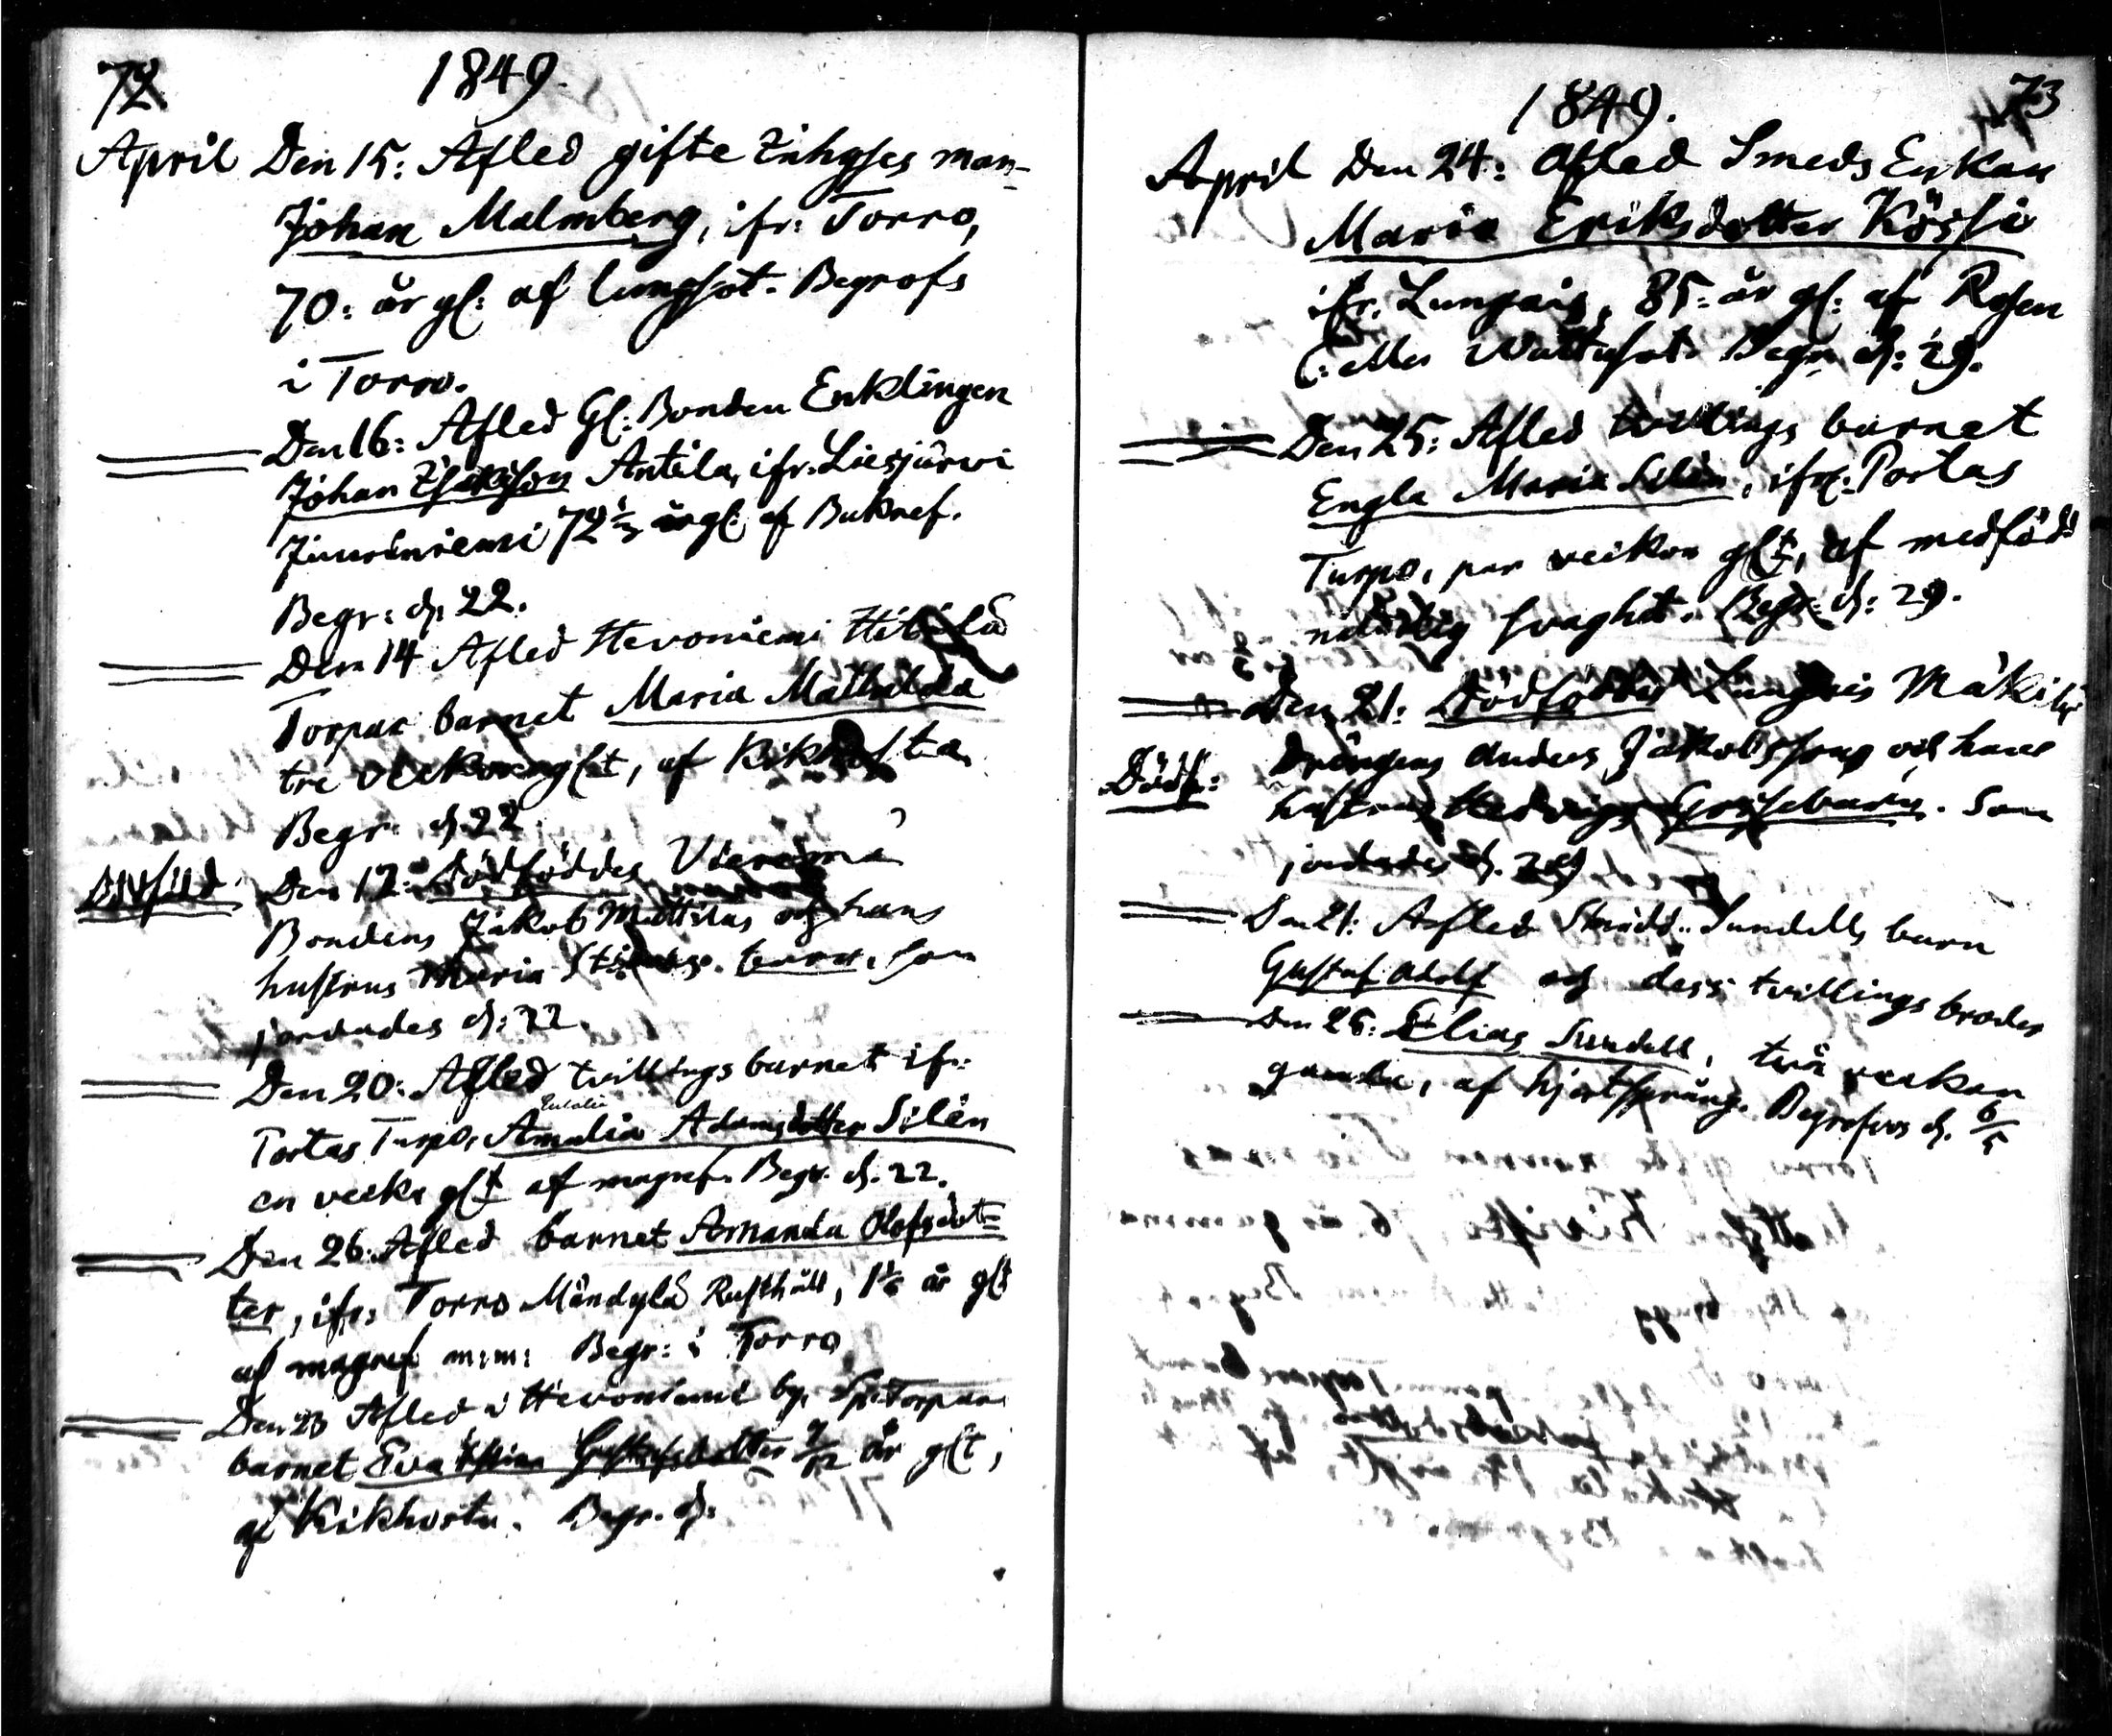 72
1849.
April Den 15: Afled gifte Inhyses man
Johan Malmberg, ifr: Torro,
70: år gl: af lungsot. Begrofs
i Torro.
Den 16: Afled Gl: Bonden Enklingen
Johan Isaksson Antila, ifr. Liesjärvi
72 ½ år gl: af Bukref.
Begr: d. 22.
Den 14 Afled Hevoniemi
Torpar barnet Maria Mathilda
tre veckor glt, af Kikhosta
Begr. d. 22
Dödföd. Den 12: Dödföddes
Bondens Jakob Mattilas och hans
hustrus Maria barn, som
jordades d: 22.
Den 20: Afled tvillingsbarnet ifr:
Eulalia
Portas Turpo, Amalia Adamsdotter Silén
en vecka glt af magref. Begr. d. 22.
Den 26: Afled barnet Amanda Olofsdot=
ter, ifr: Torro Mändylä Rusthåll, 1 år glt
af magref m:m: Begr: i Torro
Den 23 Afled i Hevoniemi by, Sp:Torpare
barnet Eva Stina Gustafsdotter 7/12 år glt,
af Kikhosta. Begr. d:
73
1849.
April Den 24: Afled Smeds Enkan
Maria Eriksdotter Kössi
ifr. Lungais, 85: år gl: af Rosen
(: eller Wattusot. Begr. d: 29.
Den 25: Afled tvillings barnet
Engla Maria Silén, ifr: Portas
Turpo, par veckor glt, af medfödd
naturlig svaghet. Begr: d: 29.
Den 21: Dödföddes Lungais Mäkilä
Dödf: Drängens Anders Jakobssons och hans
hustrus Hedvigs Gossebarn. Som
jordades d. 29
Den 21: Afled Sundells barn
Gustaf Adolf och dess tvillings broder
Den 26: Elias Sundell, två veckor
gamla, af hjertsprång. Begrofvos d. 6/5